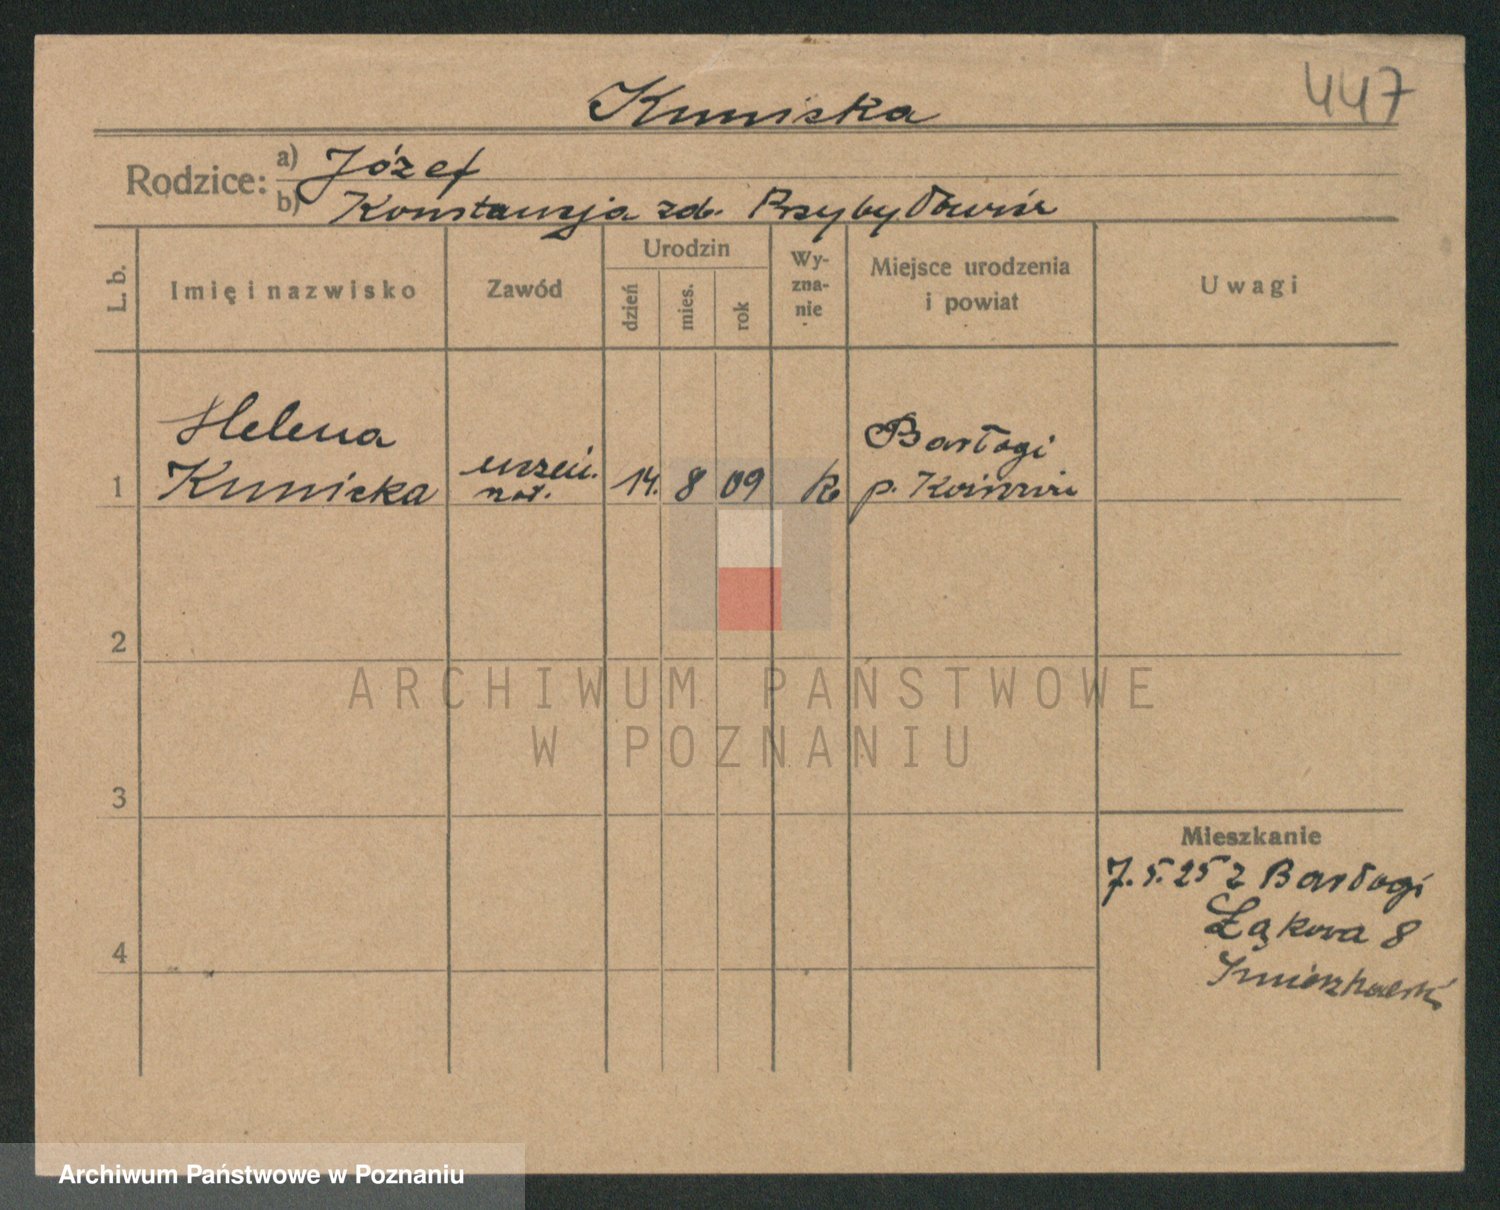 Kunicka
447
Rodzice:
a) Józef
b) Konstancja zd.
L. b.
Imię i nazwisko
Zawód
Urodzin
dzień
mies.
rok
Wy-
zna-
nie
Miejsce urodzenia
i powiat
Uwagi
1
Helena
Kunicka
14. 8 09
Barłogi
p.
2
3
4
ARCHIWUM PAŃSTWOWE
W POZNANIU
Mieszkanie
7.5.25 z Barłogi
Łąkowa 8
Archiwum Państwowe w Poznaniu